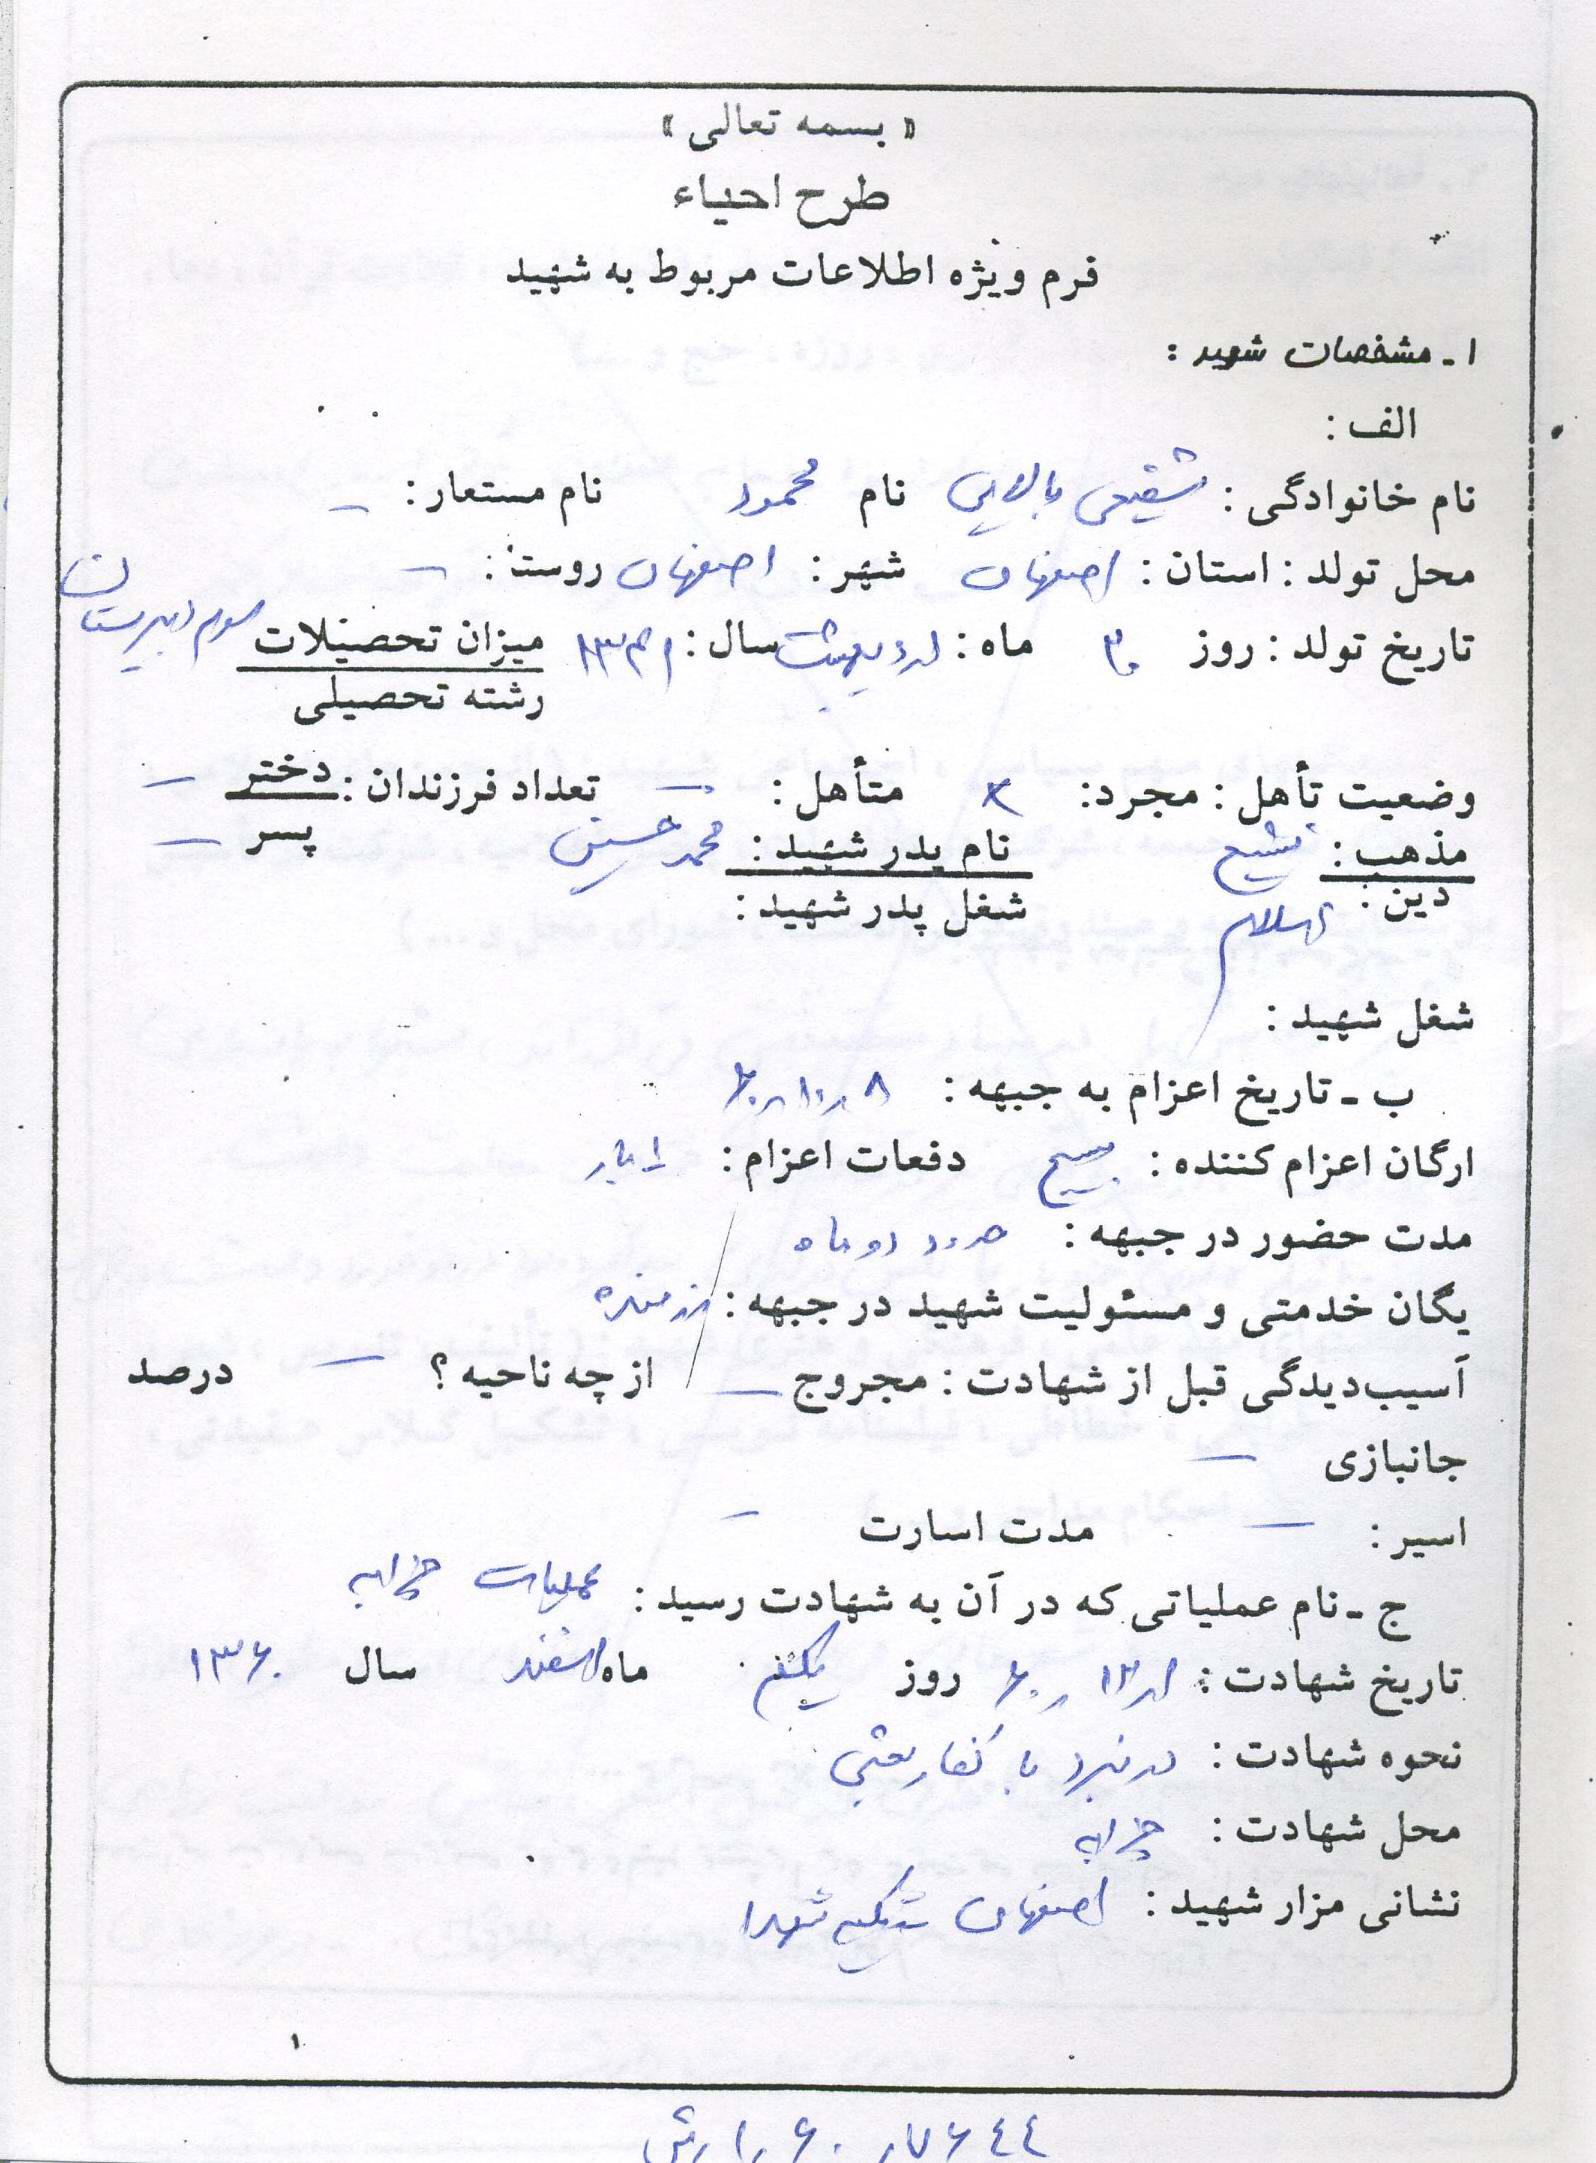 « بسمه تعالی »
طرح احیاء
فرم ویژه اطلاعات مربوط به شهید
۱ - مشخصات شهید :
الف :
نام خانوادگی : شفیعی بابلایی نام محمود نام مستعار : —
محل تولد : استان : اصفهان شهر : اصفهان روستا : —
تاریخ تولد : روز ۳۰ ماه : اردیبهشت سال : میزان تحصیلات سوم دبیرستان
رشته تحصیلی
وضعیت تأهل : مجرد : × متأهل : — تعداد فرزندان : دختر —
مذهب : تشیع نام پدر شهید : محمدحسین پسر —
دین : اسلام شغل پدر شهید :
شغل شهید :
ب - تاریخ اعزام به جبهه : ۸ر۱۰ر۶۰
ارگان اعزام کننده : بسیج دفعات اعزام : ۱ بار
مدت حضور در جبهه : حدود دو ماه
یگان خدمتی و مسئولیت شهید در جبهه : رزمنده
آسیب‌دیدگی قبل از شهادت : مجروح — از چه ناحیه ؟ — درصد
جانبازی —
اسیر : — مدت اسارت —
ج - نام عملیاتی که در آن به شهادت رسید : عملیات چزابه
تاریخ شهادت : ۱ر۱۲ر۶۰ روز یکم ماه اسفند سال ۱۳۶۰
نحوه شهادت : در نبرد با کفار بعثی
محل شهادت : چزابه
نشانی مزار شهید : اصفهان تکیه شهدا
۱